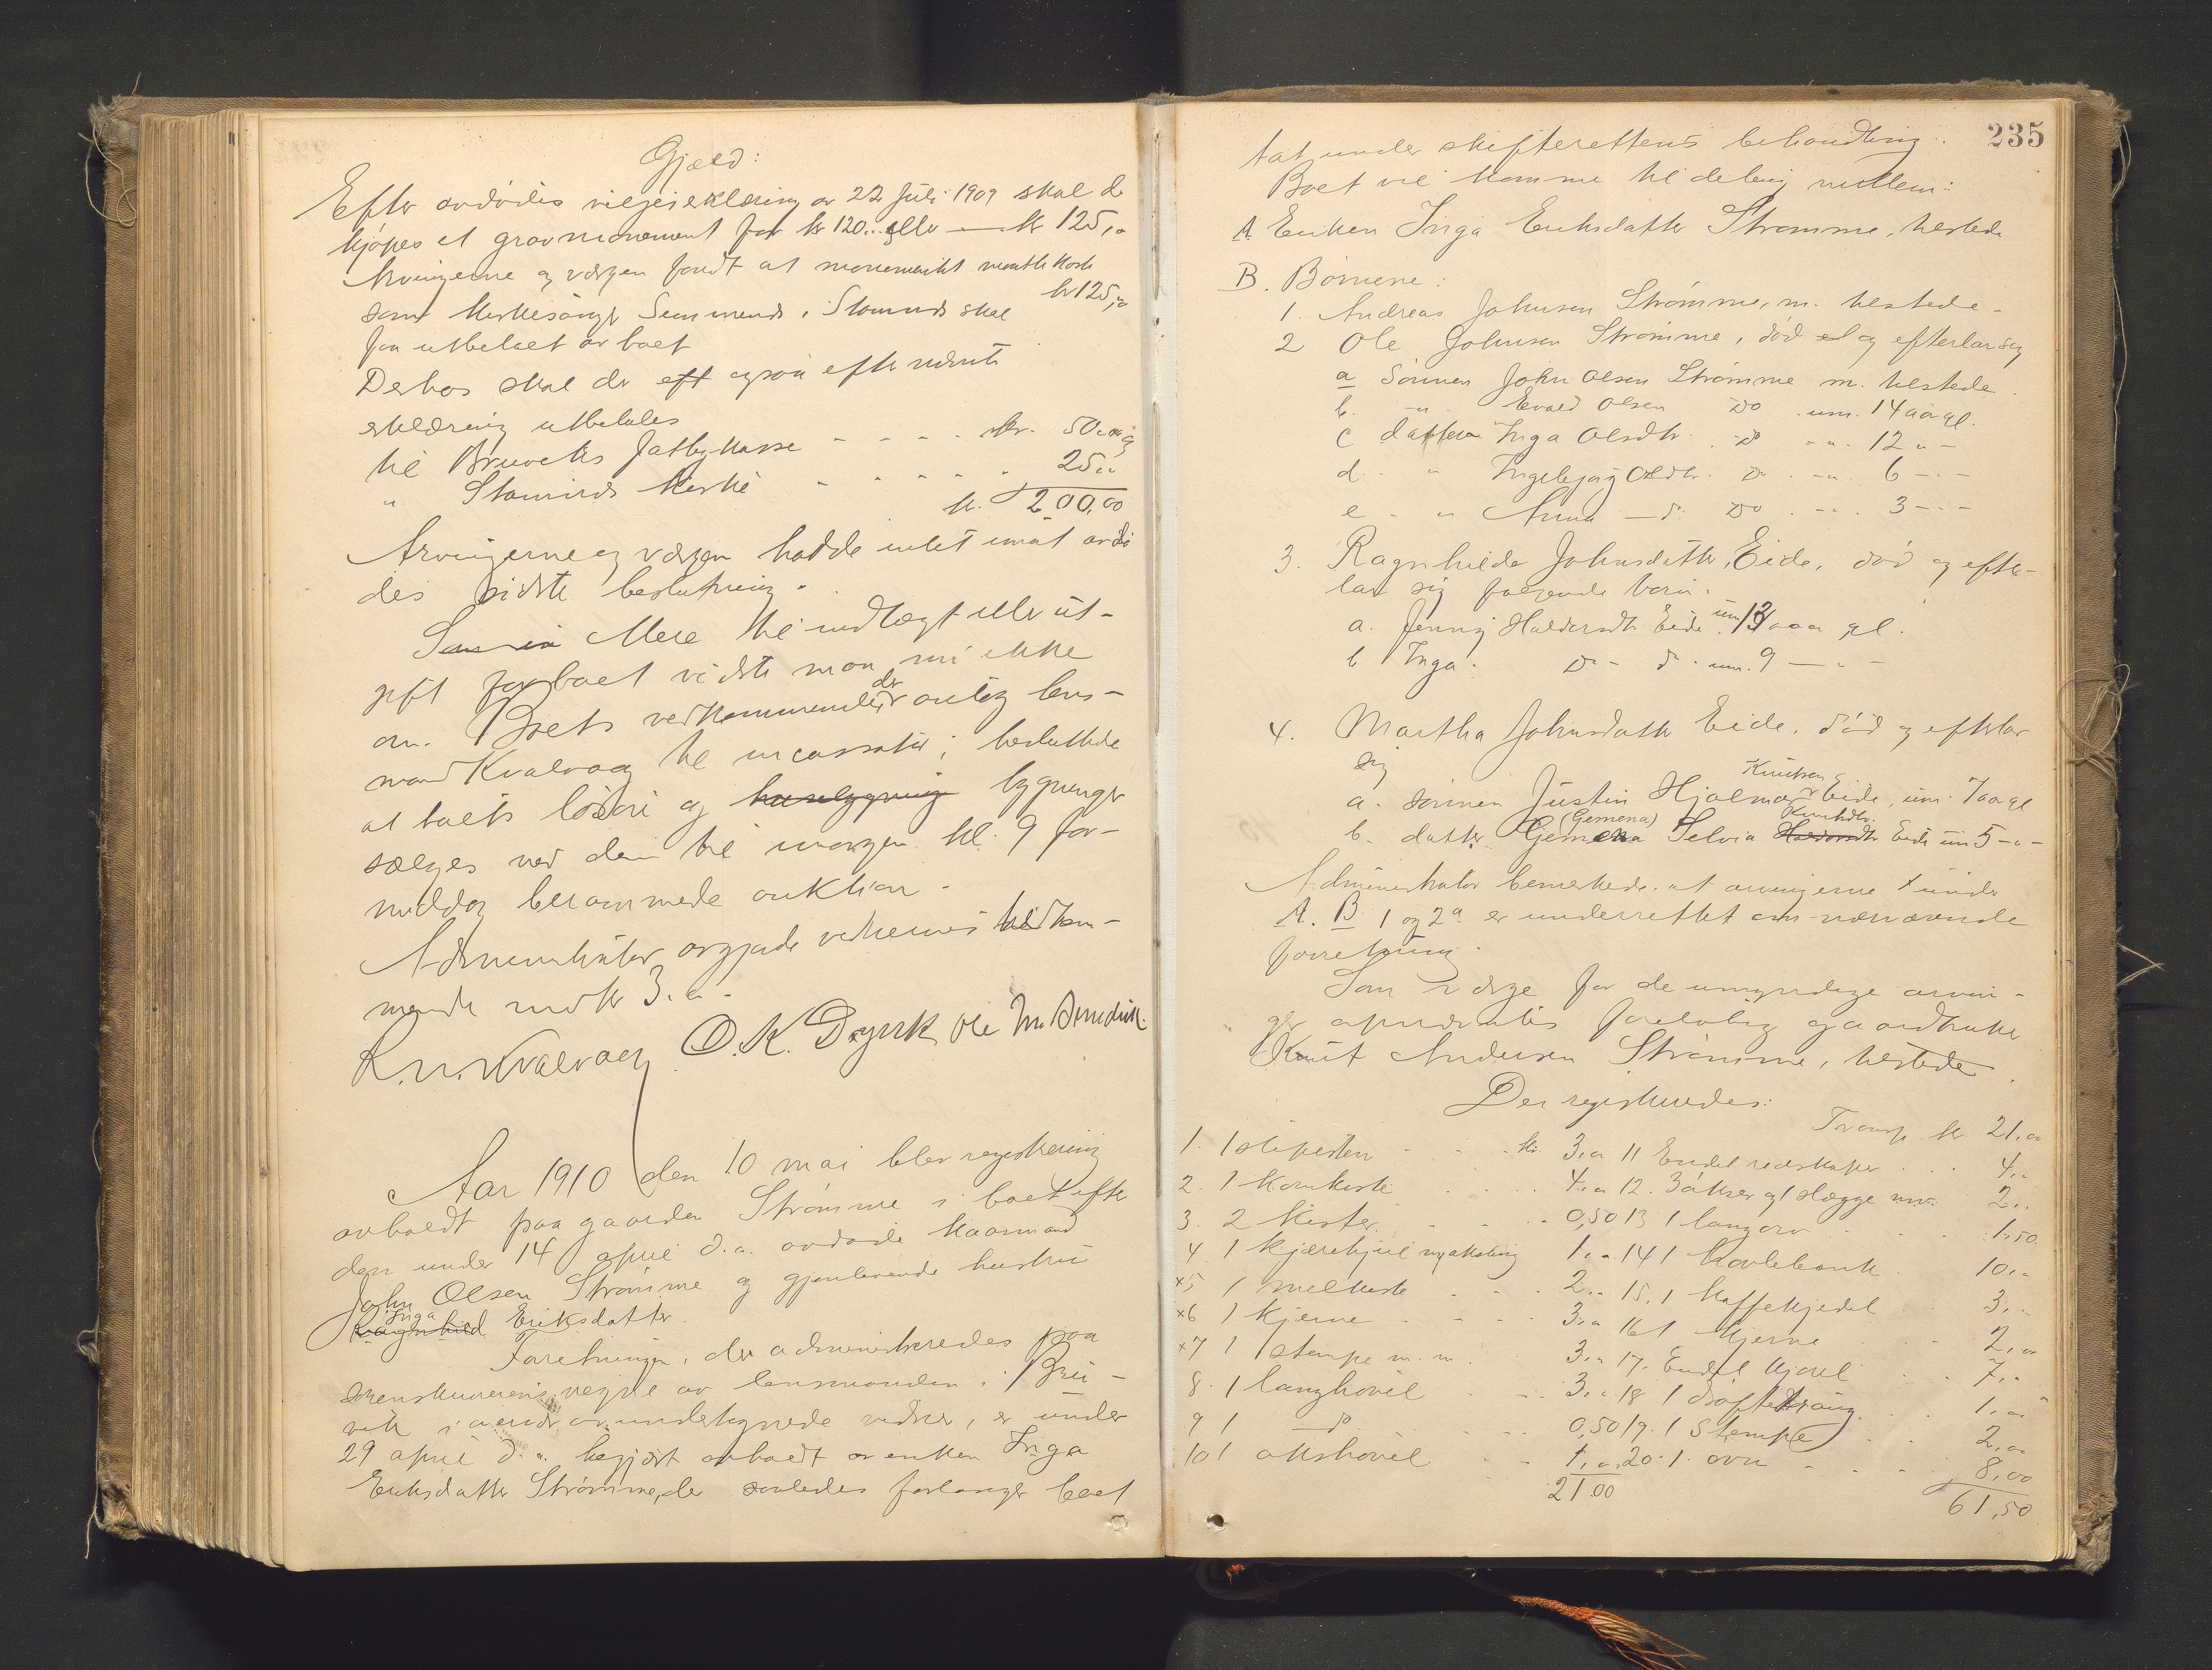 Gjæld:
Efter avdødes viljeserklæring av 22 Juli 1909 skal der
kjøpes et gravmonument for kr 120.. eller — kr 125,00
Arvingerne og værgen fandt at monumentet maatte koste
kr 125,00
samt kirkesanger Semmends i Stamnes skal
faa utbetalt av boet
Derhos skal der eft ogsaa efter nævnte
erklæring utbetales
til Bruviks fattigkasse - - - - kr. 50.00
" Stamnes kirke - - - - - 25..
kr. 200,00
Arvingerne og værgen hadde intet imot avdø
des sidste beslutning.
Mere til indtægt eller ut-
gift for boet vidste man nu ikke
om. Boets vedkommende der antog lens-
mand Kvalvaag til incassator; besluttede
at boets løsøre og husebygning bygninger
sælges ved den til imorgen kl. 9 for-
middag berammede auktion.
Administrator avgjorde vidnernes tilkom-
mende med kr 3.00.
K. N. Kvalvaag O. K. Dyvik Ole M. Benedik.
Aar 1910 den 10 mai blev registrering
avholdt paa gaarden Strømme i boet efter
den under 14 april d.a. avdøde kaarmand
John Olsen Strømme og gjenlevende hustru
Inga
Ragnhild Eriksdatter.
Forretningen, der administreredes paa
sorenskriverens vegne av lensmanden i Bru-
vik i nærvær av undertegnede vidner, er under
29 april d.a. begjært avholdt av enken Inga
Eriksdatter Strømme, der saaledes forlanger boet
235
tat under skifterettens behandling.
Boet vil komme til deling mellem:
A. Enken Inga Eriksdatter Strømme, hersteds
B. Børnene:
1. Andreas Johnsen Strømme, m. hersteds.
2 Ole Johnsen Strømme, død el og efterlar sig
a Sønnen John Olsen Strømme m. hersteds.
b. -"- Evald Olsen Do . um. 14 aar gl.
c datter Inga Olsdtr. Do -"- 12 " -
d. " Ingebjørg Olsdtr. Do -"- 6 -"-
e - " Anna - d: Do -"- 3 -"-
3. Ragnhilda Johnsdatter, Eide, død og efter-
lar sig følgende børn:
a. Jenny Haldorsdtr Eide um 13 aar gl.
b Inga. Do - d. um. 9 — " -
4. Martha Johnsdatter Eide, død og efterlar
sig
Knutsen
a. sønnen Justin Hjalmar Eide, um. 7 aar gl
(Gemena) Knutsdtr.
b. datter Gjemena Selvia Haldorsdtr Eide um 5 -"-
Administrator bemerkede, at arvingerne under
A. B 1 og 2a er underrettet om nærværende
forretning.
Som værge for de umyndige arvin-
ger opnævntes foreløbig gaardbruker
Knut Andersen Strømme, hersteds.
Der registreredes:
Transp. kr. 21,00
1. 1 slipesten - - - kr. 3,00 11 Endel redskaper . . . 4,..
2. 1 kornkiste . . . . 4.00 12. 3 økser og 1 slægge m.v. 2..
3. 2 kister. - - - 0,50 13 1 langorv . . . 1,50.
4 1 kjærehjul m/akslning 1.00 14 1 høvlebenk 10..
x5 1 melkiste . . . 2.. 15. 1 kaffekjedel . . 3,..
x6 1 kjerne - - - 3.00 16 1 kjerne . . 2,00
x7 1 1 stampe m. m. 3.. 17. Endel kjørel . . 7,.
8. 1 langhøvel - - 3.. 18 1 drøftetraug . . 1,00
9 1 do - - - 0,50 19. 1 Stampe . . 2,00
10 1 okshøvel - - 1,00 20. 1 ovn - - - 8,00
21 00
61,50